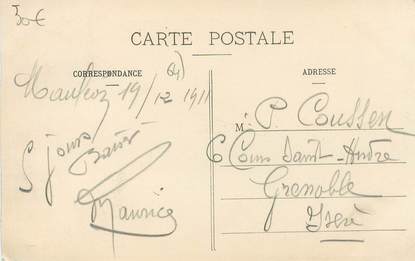 30€
CARTE POSTALE
CORRESPONDANCE
ADRESSE
19/12 1911
5 jours
Maurice
M P. Coussen
6 Cours Saint-André
Grenoble
Isère